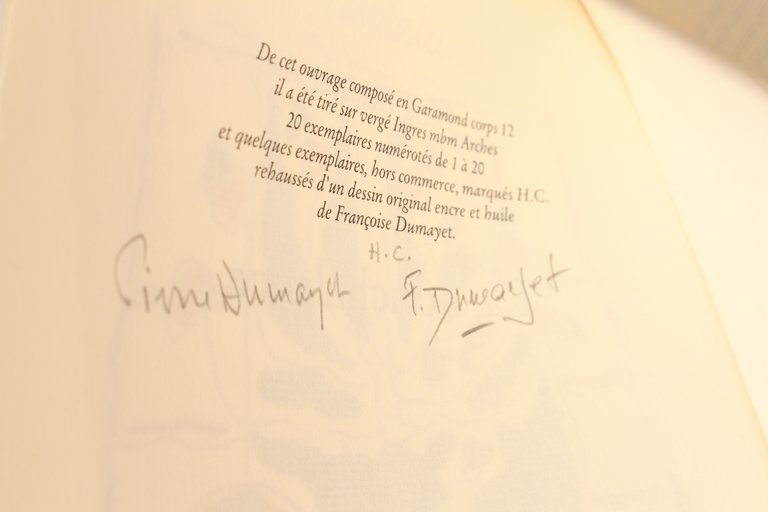 De cet ouvrage composé en Garamond corps 12
il a été tiré sur vergé Ingres mbm Arches
20 exemplaires numérotés de 1 à 20
et quelques exemplaires, hors commerce, marqués H.C.
rehaussés d'un dessin original encre et huile
de Françoise Dumayet.
H.C.
Pierre Dumayet F. Dumayet